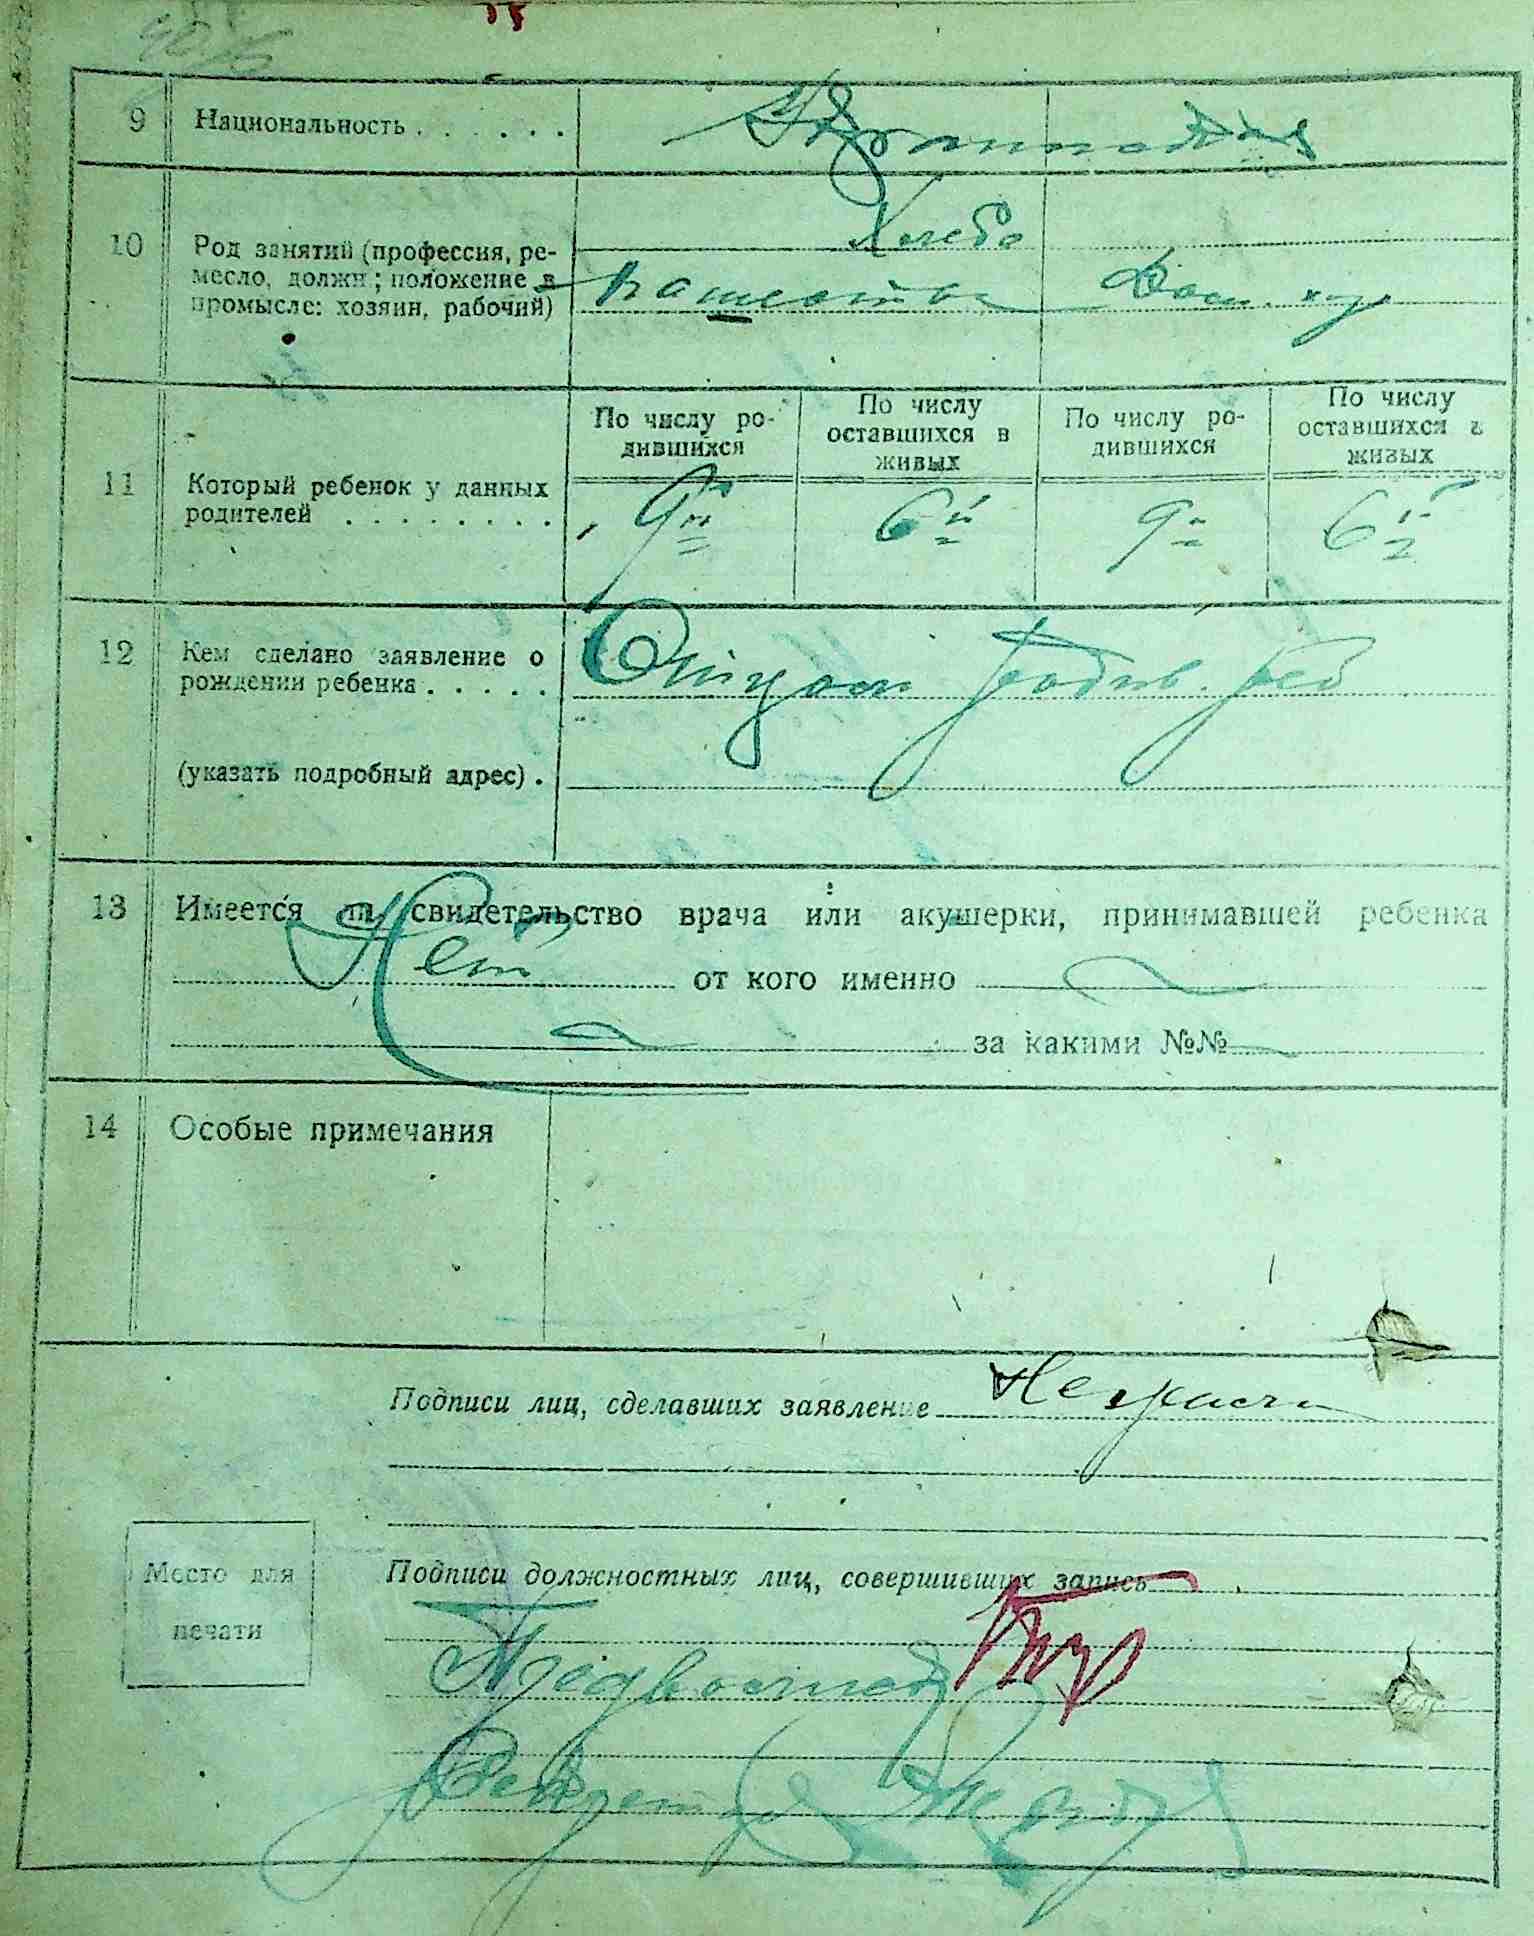 9 Национальность . . . . . . Украинская
10 Род занятий (профессия, ре-
месло, должн; положение в
промысле: хозяин, рабочий)
Хлебо
пашество Дом. хоз.
По числу ро-
дившихся
По числу
оставшихся в
живых
По числу ро-
дившихся
По числу
оставшихся в
живых
11 Который ребенок у данных
родителей . . . . . . . .
9й 6й 9й 6й
12 Кем сделано заявление о
рождении ребенка . . . . .
Отцом родив. реб
(указать подробный адрес) .
13 Имеется ли свидетельство врача или акушерки, принимавшей ребенка
Нет от кого именно
за какими №№
14 Особые примечания
Подписи лиц, сделавших заявление
Место для
печати
Подписи должностных лиц, совершивших запись
Секретарь